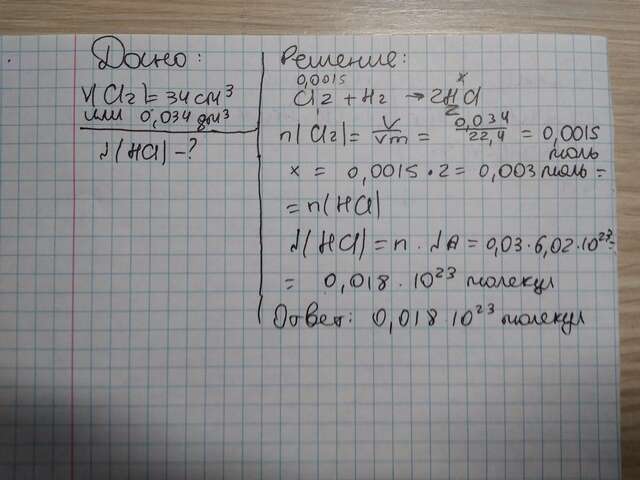 Дано:
V(Cl2)=34см³
или 0,034 дм³
N(HCl)-?
Решение:
0,0015 x
Cl2 + H2 → 2HCl
2
n(Cl2)= V/Vm = 0,034/22,4 = 0,0015
моль
x = 0,0015 · 2 = 0,003 моль =
= n(HCl)
N(HCl) = n · NA = 0,03·6,02·10²³=
= 0,018 · 10²³ молекул
Ответ: 0,018·10²³ молекул